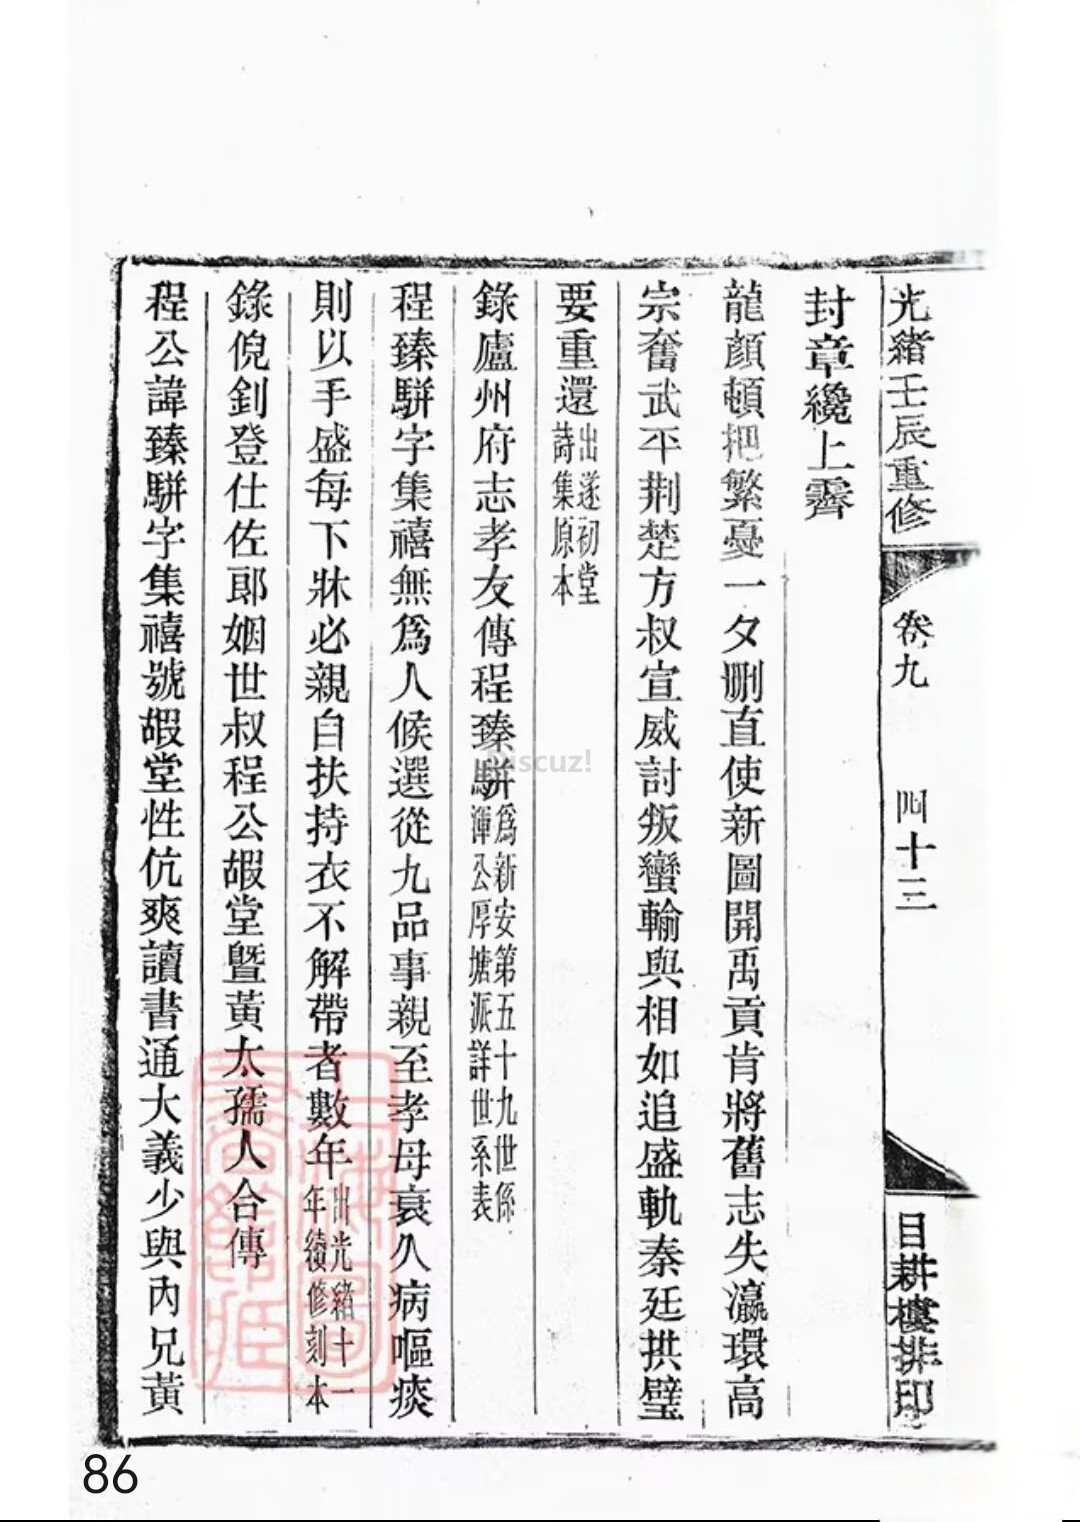 光緒壬辰重修 卷九 四十三 目耕樓排印
封章纔上霽
龍顏頓把繁憂一夕刪直使新圖開禹貢肯將舊志失瀛環高
宗奮武平荆楚方叔宣威討叛蠻輸與相如追盛軌秦廷拱璧
要重還出遂初堂詩集原本
錄廬州府志孝友傳程臻駢為新安第五十九世係渾公厚塘派詳世系表
程臻駢字集禧無爲人候選從九品事親至孝母衰久病嘔痰
則以手盛每下牀必親自扶持衣不解帶者數年出光緒十一年續修刻本
錄倪釗登仕佐郎姻世叔程公嘏堂暨黃太孺人合傳
程公諱臻駢字集禧號嘏堂性伉爽讀書通大義少與內兄黃
Discuz!
上海圖書館藏
86